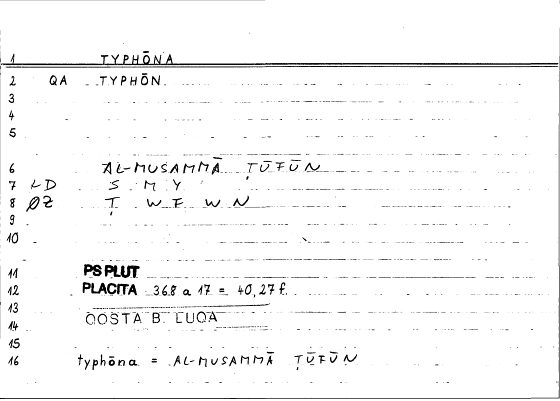 1 TYPHŌNA
2 QA TYPHŌN
3
4
5
6 AL-MUSAMMĀ ṬŪFŪN
7 LD S M Y
8 ØZ Ṭ W F W N
9
10
11 PS PLUT
12 PLACITA 368 a 17 = 40,27 f.
13
14 QOSTA B. LUQA
15
16 typhōna = AL-MUSAMMĀ ṬŪFŪN